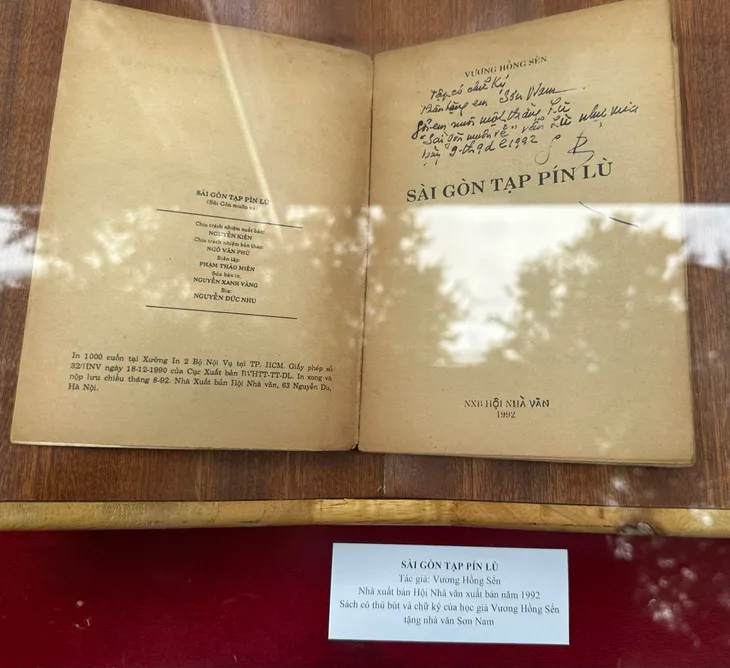 SÀI GÒN TẠP PÍN LÙ
(Sài Gòn muôn
Chịu trách nhiệm xuất bản:
NGUYỄN KIÊN
Chịu trách nhiệm bản thảo:
NGÔ VĂN PHÚ
Biên tập:
PHẠM THẢO MIÊN
Sửa bản in:
NGUYỄN XANH VÀNG
Bìa:
NGUYỄN ĐỨC NHU
In 1000 cuốn tại Xưởng In 2 Bộ Nội Vụ tại TP. HCM. Giấy phép số
ngày 18-12-1990 của Cục Xuất bản BVHTT-TT-DL. In xong và
nộp lưu chiểu tháng 8-92. Nhà Xuất bản Hội Nhà văn, 63 Nguyễn Du,
Hà Nội.
VƯƠNG HỒNG SỂN
Tập có chữ ký
thân tặng em Sơn Nam
một
"Sài gòn muôn về" vẫn Lù như xưa
1992
SÀI GÒN TẠP PÍN LÙ
NXB HỘI NHÀ VĂN
1992
SÀI GÒN TẠP PÍN LÙ
Tác giả: Vương Hồng Sển
Nhà xuất bản Hội Nhà văn xuất bản năm 1992
Sách có thủ bút và chữ ký của học giả Vương Hồng Sển
tặng nhà văn Sơn Nam